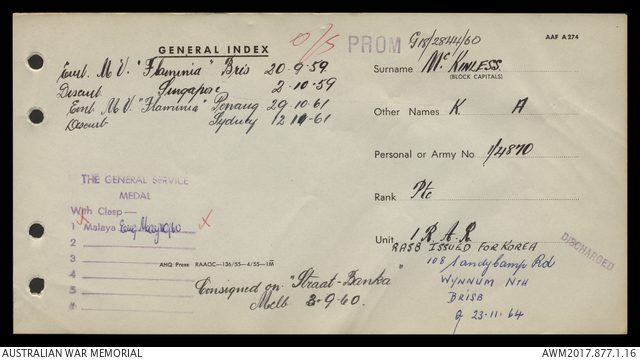 GENERAL INDEX
O/S
PROM
G18/2844/60
AAF A 274
Emb. M.V. "Flaminia" Bris 20-9-59
Disemb Singapore 2-10-59
Emb M.V. "Flaminia" Penang 29-10-61
Disemb Sydney 12 11-61
Surname McKINLESS.
(BLOCK CAPITALS)
Other Names K. A
Personal or Army No 1/4870
Rank Pte
Unit 1 R.A.R.
RASB ISSUED FOR KOREA
108 Sandycamp Rd
WYNNUM Nth
BRISB
23-11-64
DISCHARGED
THE GENERAL SERVICE
MEDAL
With Clasp—
1 Malaya
2
3
4
5
6
AHQ Press RAAOC—136/55—4/55—1M
Consigned on "Straat-Banka"
Melb 3-9-60.
AUSTRALIAN WAR MEMORIAL
AWM2017.877.1.16